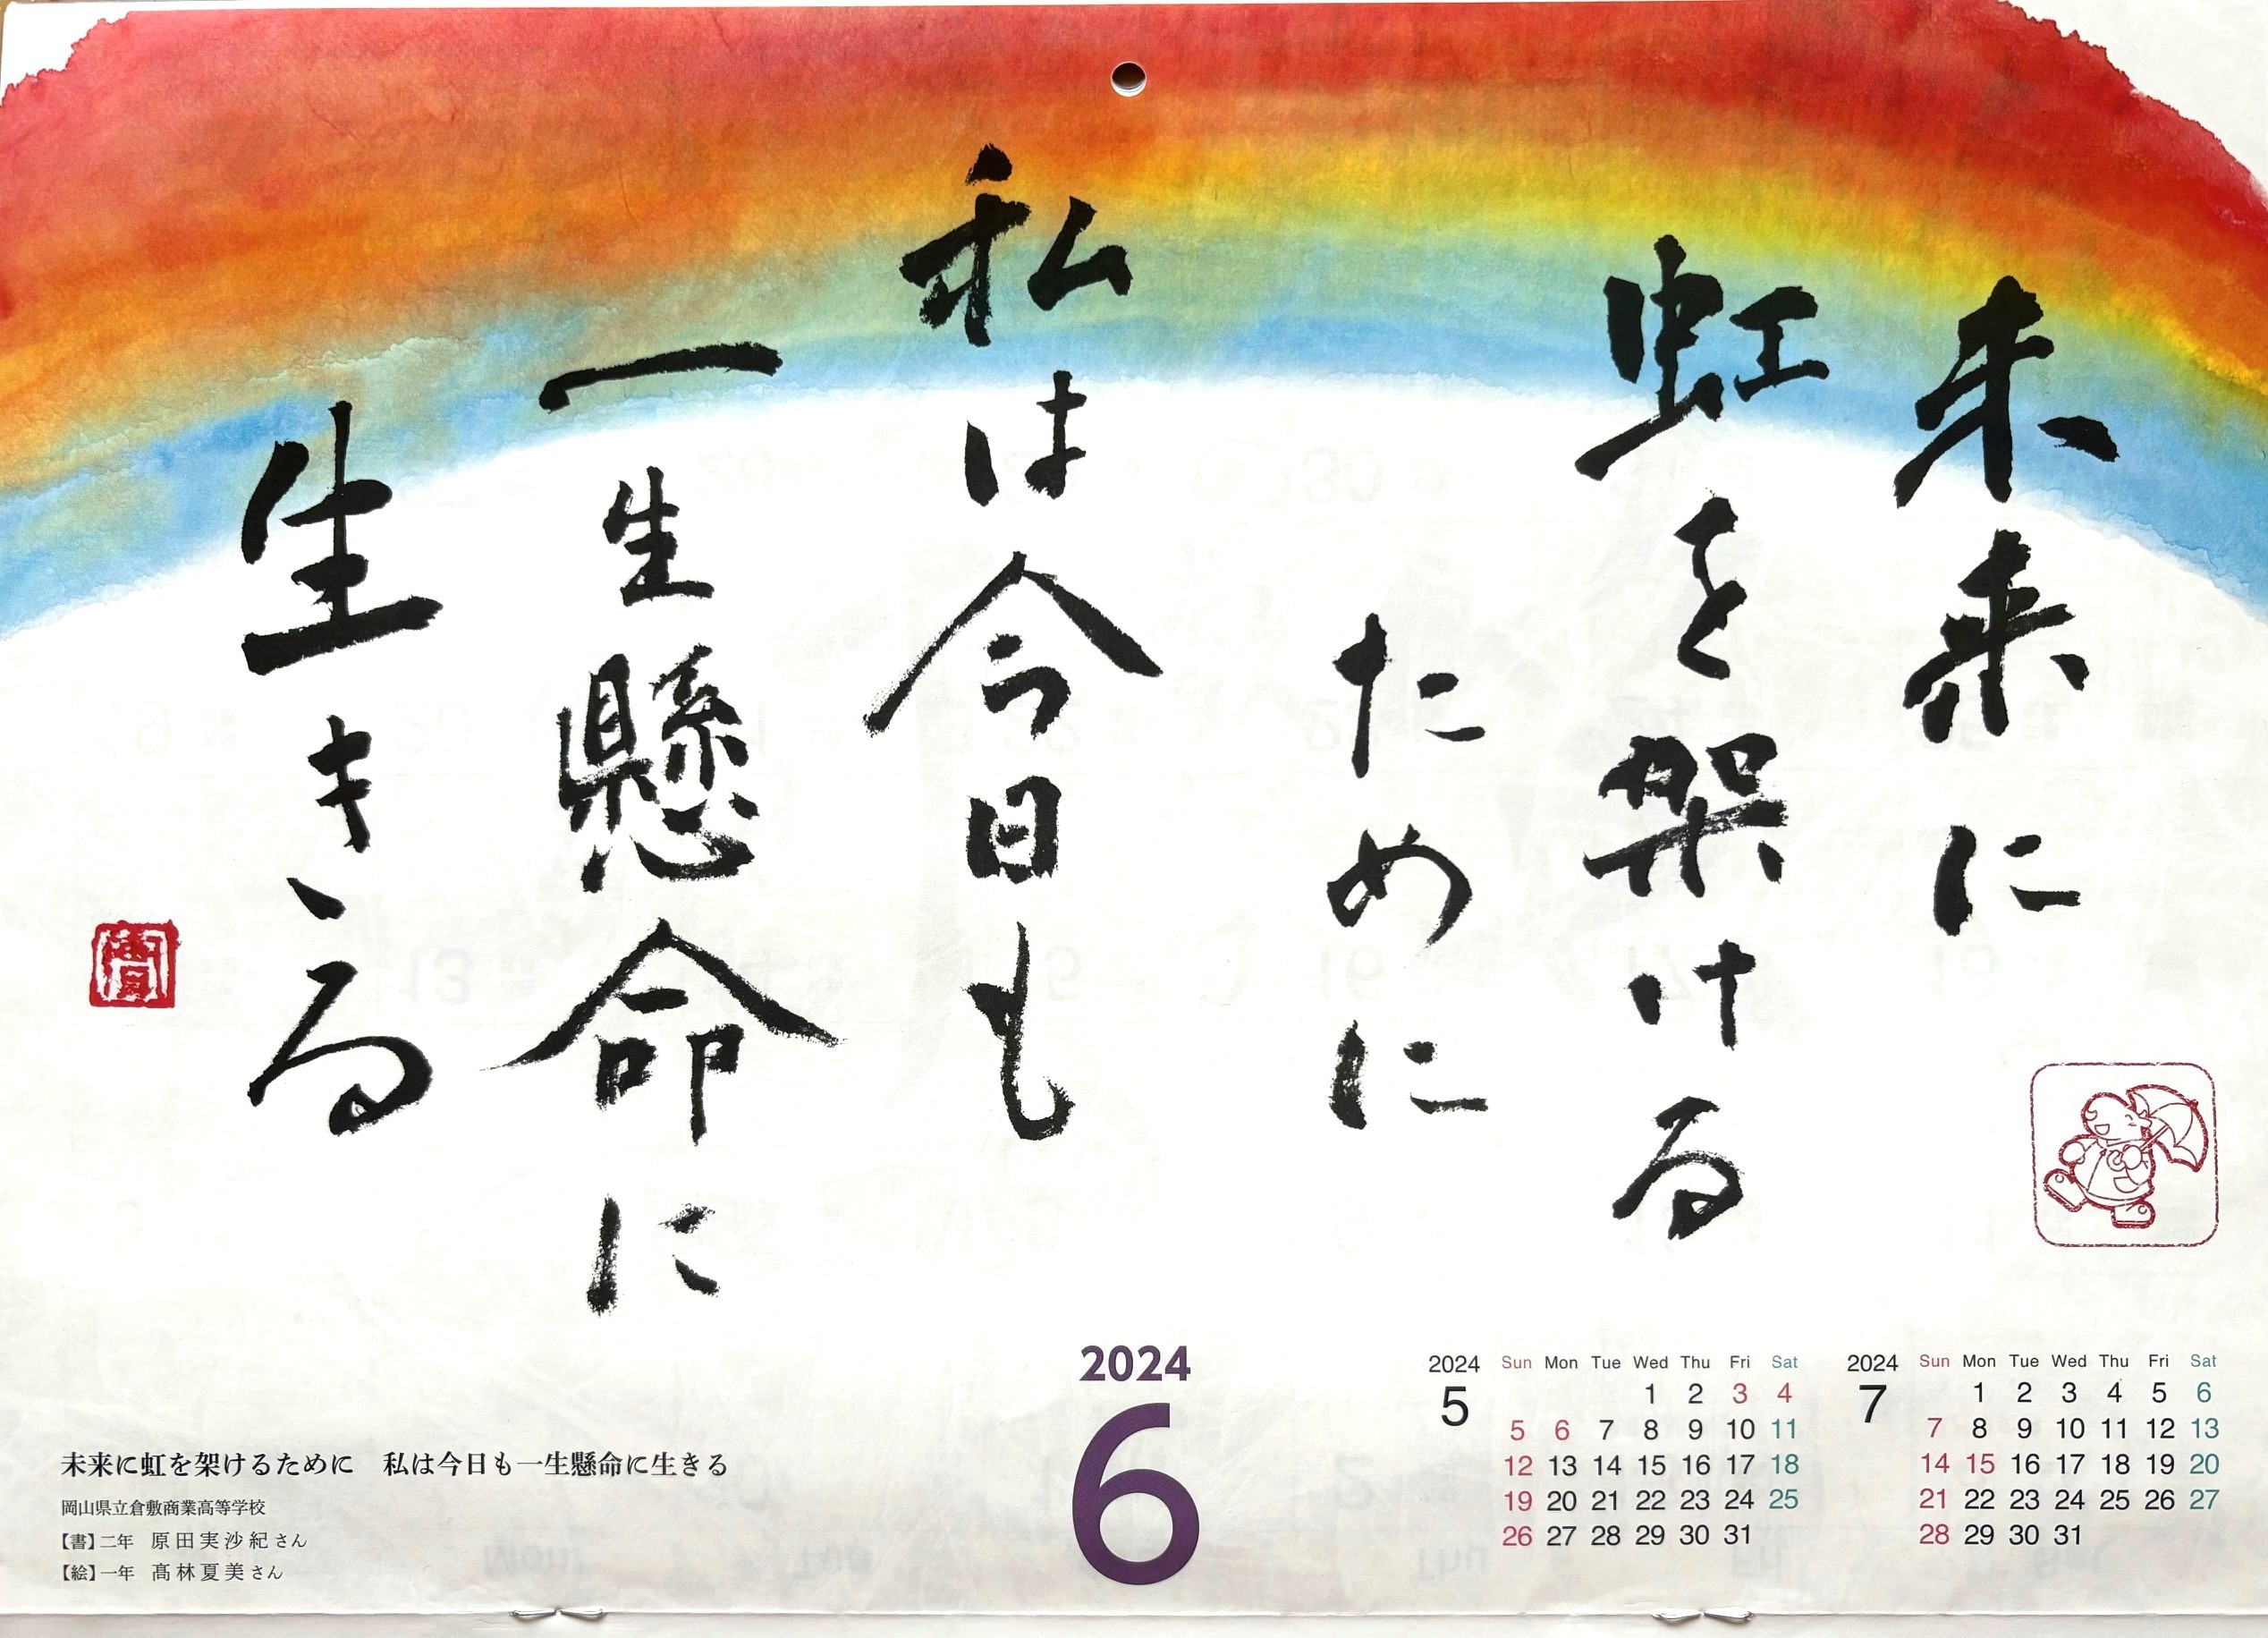 未来に
虹を架ける
ために
私は今日も
一生懸命に
生きる
未来に虹を架けるために 私は今日も一生懸命に生きる
岡山県立倉敷商業高等学校
【書】二年 原田実沙紀さん
【絵】一年 髙林夏美さん
2024
6
2024
5
Sun Mon Tue Wed Thu Fri Sat
1 2 3 4
5 6 7 8 9 10 11
12 13 14 15 16 17 18
19 20 21 22 23 24 25
26 27 28 29 30 31
2024
7
Sun Mon Tue Wed Thu Fri Sat
1 2 3 4 5 6
7 8 9 10 11 12 13
14 15 16 17 18 19 20
21 22 23 24 25 26 27
28 29 30 31